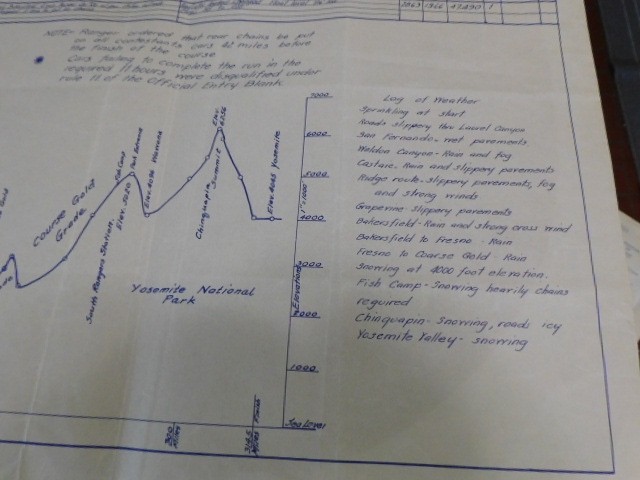 2963 1366 47.890 1
NOTE- Ranger ordered that rear chains be put
on all contestants cars 42 miles before
the finish of the course
Cars failing to complete the run in the
required 11 hours were disqualified under
rule 11 of the Official Entry Blank
Course Gold
Grade
South Rangers Station
Elev. 5020
Park Entrance
Elev. 4096 Wawona
Chinquapin
Summit
Elev. 6256
Elev. 4045 Yosemite
Yosemite National
Park
7000
6000
5000
1"=1000
4000
3000
Elevations
2000
1000
Sea Level
300
Miles
Miles Finish
Log of Weather
Sprinkling at start
Roads slippery thru Laurel Canyon
San Fernando, wet pavements
Weldon Canyon- Rain and fog
Castaic, Rain and slippery pavements
Ridge route, slippery pavements, fog
and strong winds
Grapevine- slippery pavements
Bakersfield- Rain and strong cross wind
Bakersfield to Fresno - Rain
Fresno to Coarse Gold - Rain
Snowing at 4000 foot elevation.
Fish Camp- Snowing heavily chains
required
Chinquapin- Snowing, roads icy
Yosemite Valley- snowing